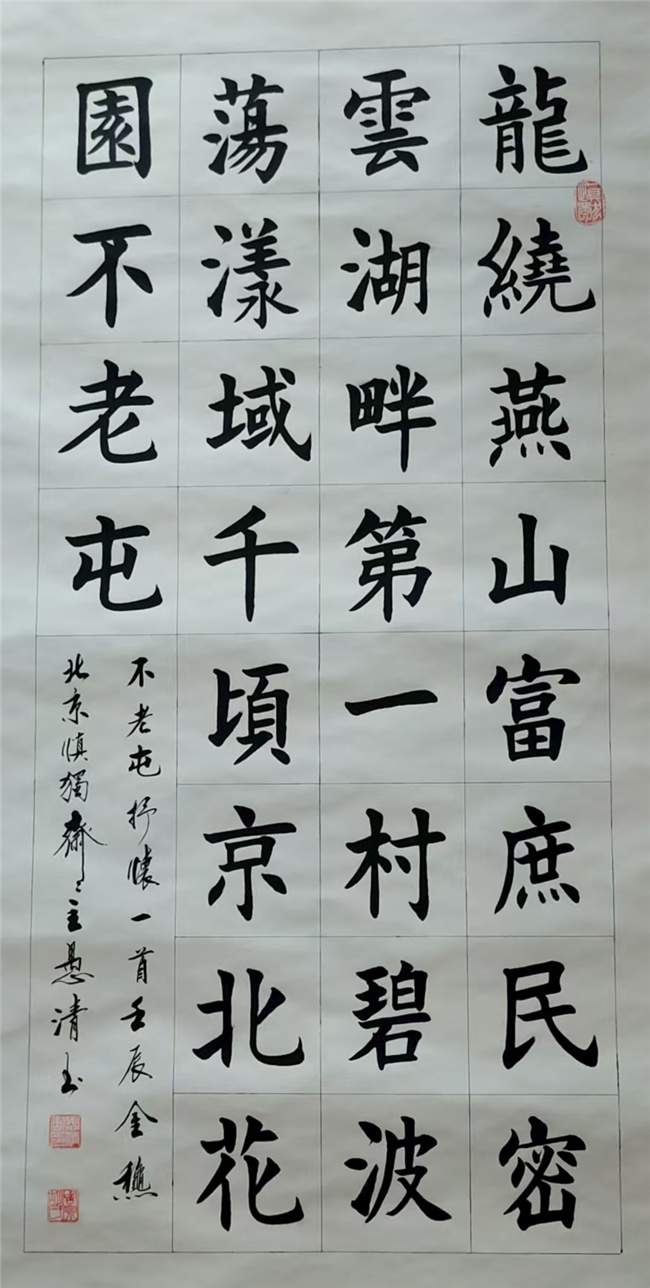 龍繞燕山富庶民密
雲湖畔第一村碧波
蕩漾域千頃京北花
園不老屯
不老屯抒懷一首壬辰金穐
北京慎獨齋之主愚清書